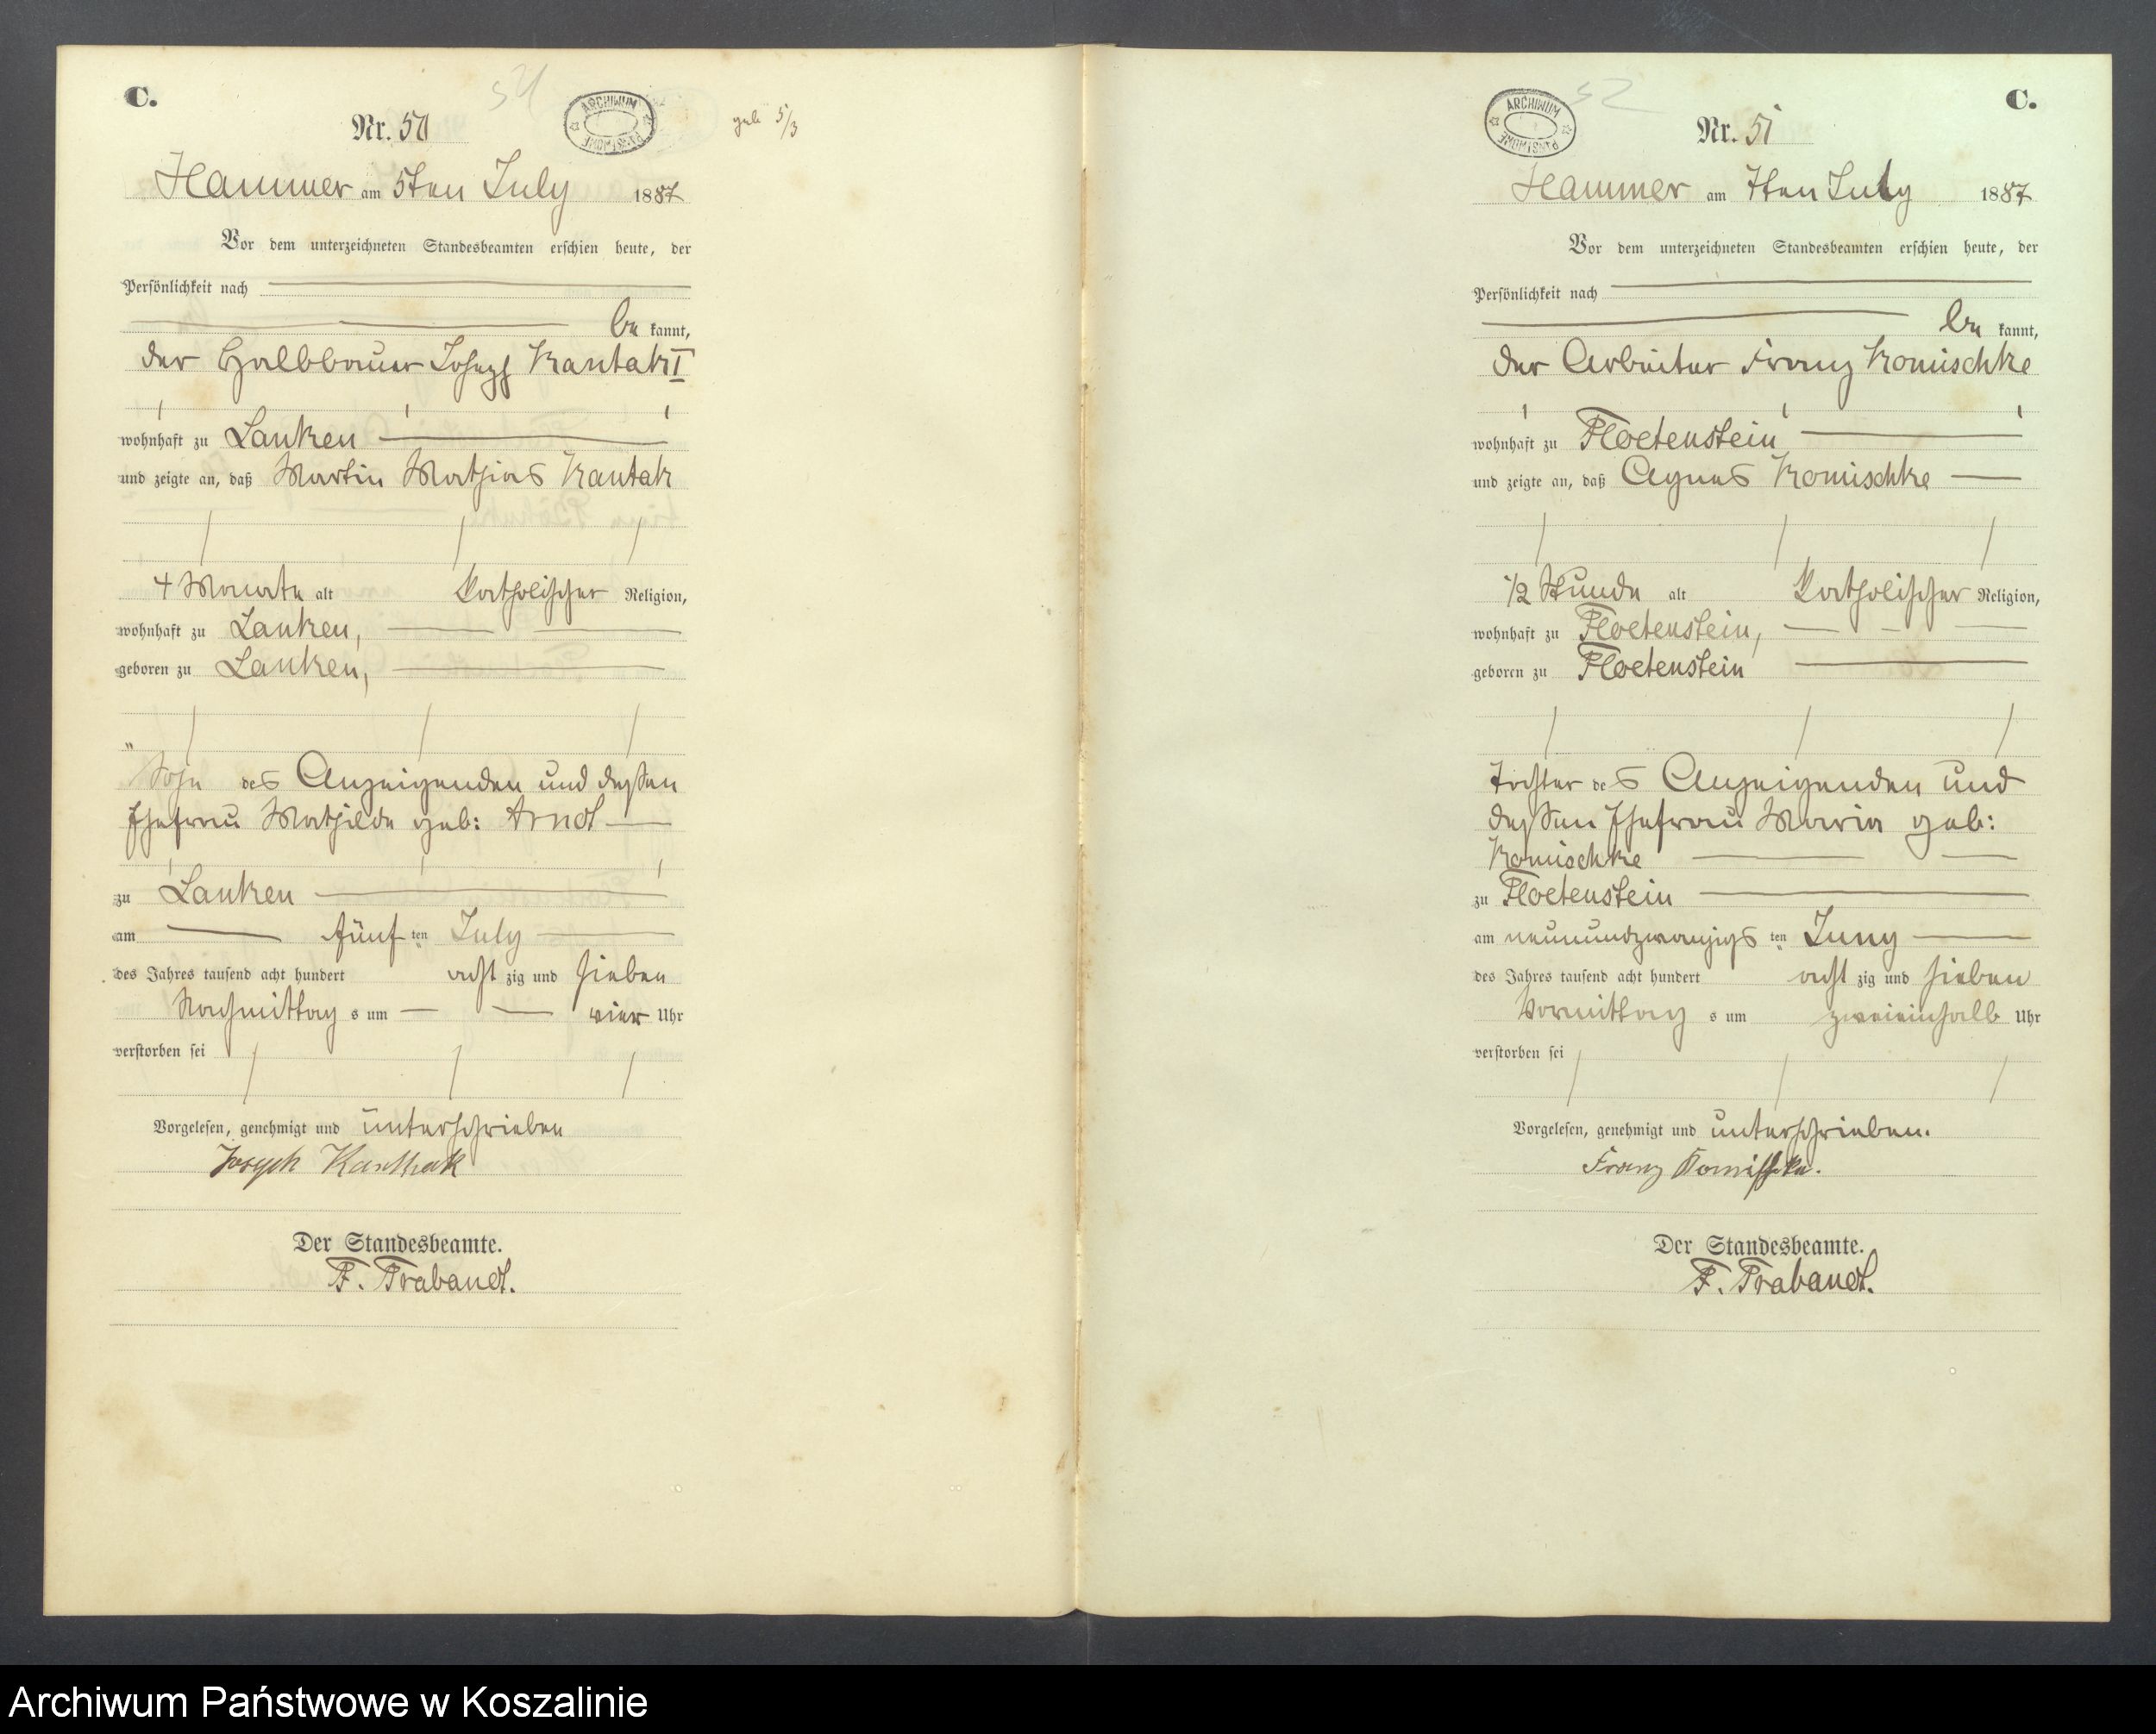 C.
54
Nr. 50
ARCHIWUM PAŃSTWOWE
geb 5/3
Hammer am 5ten July 1887
Vor dem unterzeichneten Standesbeamten erschien heute, der
Persönlichkeit nach
be kannt,
der Halbbauer Joseph Kantak I
wohnhaft zu Lanken
und zeigte an, daß Martin Mathias Kantak
4 Monate alt katholischer Religion,
wohnhaft zu Lanken,
geboren zu Lanken,
Sohn des Anzeigenden und dessen
Ehefrau Mathilde geb: Arndt
zu Lanken
am fünf ten July
des Jahres tausend acht hundert acht zig und sieben
Nachmittag s um vier Uhr
verstorben sei
Vorgelesen, genehmigt und unterschrieben
Joseph Kanthak
Der Standesbeamte.
F. Trabandt.
C.
52
ARCHIWUM PAŃSTWOWE
Nr. 51
Hammer am 7ten July 1887
Vor dem unterzeichneten Standesbeamten erschien heute, der
Persönlichkeit nach
be kannt,
der Arbeiter Franz Komischke
wohnhaft zu Floetenstein
und zeigte an, daß Agnes Komischke
1/2 Stunde alt katholischer Religion,
wohnhaft zu Floetenstein,
geboren zu Floetenstein
Tochter des Anzeigenden und
dessen Ehefrau Maria geb:
Komischke
zu Floetenstein
am neunundzwanzigs ten Juny
des Jahres tausend acht hundert acht zig und sieben
Vormittag s um zweieinhalb Uhr
verstorben sei
Vorgelesen, genehmigt und unterschrieben.
Franz Komischke.
Der Standesbeamte.
F. Trabandt.
Archiwum Państwowe w Koszalinie